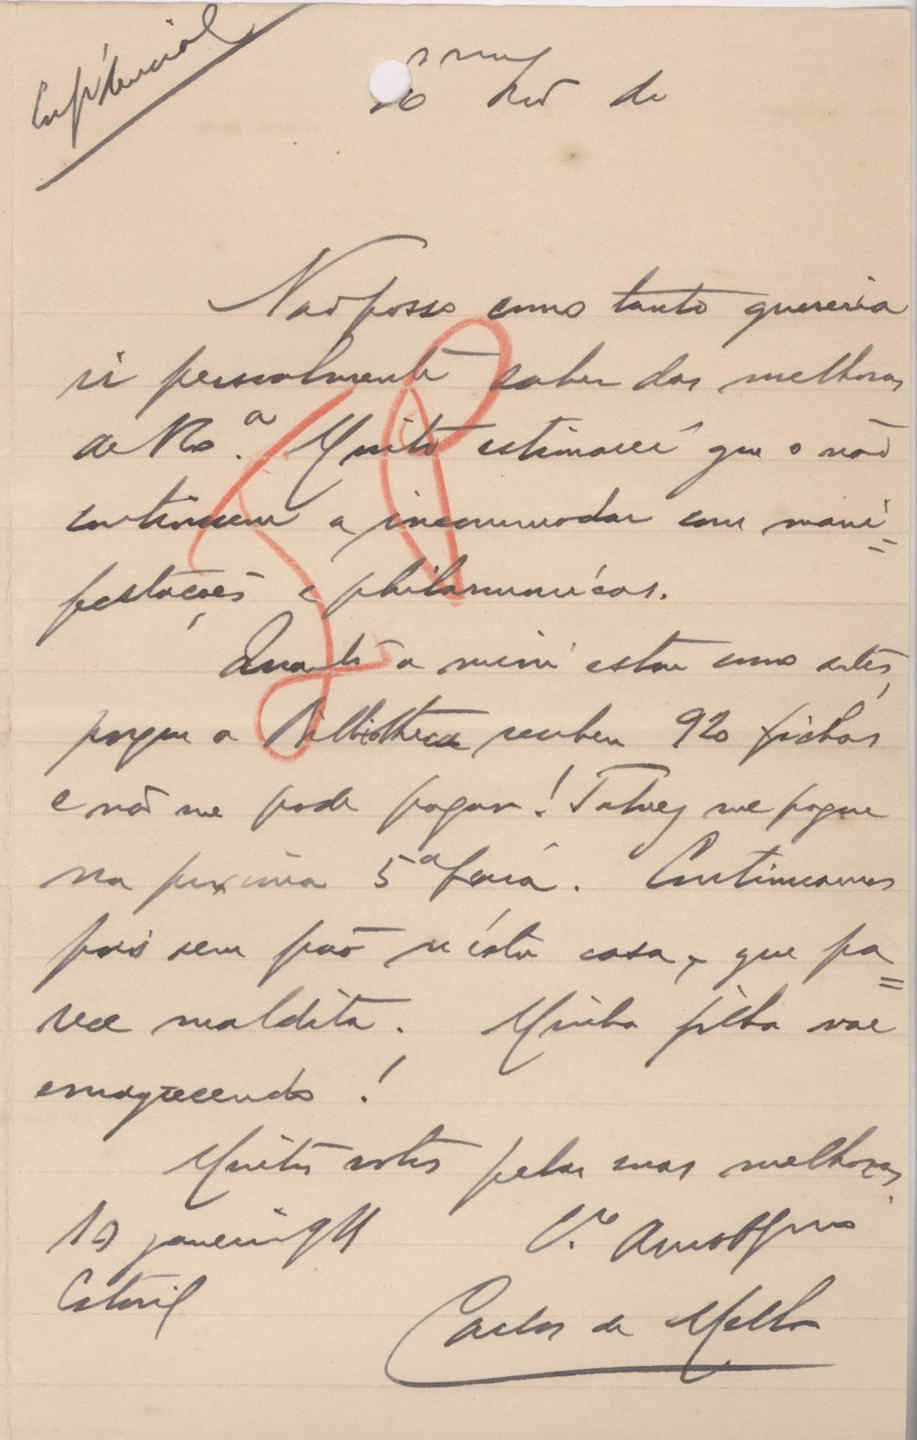 Confidencial
Não posso como tanto quereria
ir pessoalmente saber das melhoras
de V. Ex.ª. Muito estimarei que o não
continuem a incommodar com mani=
festações e philarmonicas.
Quanto a mim estou como antes,
porque a Bibliotheca recebeu 920 fichas
e não me pode pagar! Talvez me pague
na proxima 5ª feira. Continuamos
pois sem pão n'esta casa, que pa=
rece maldita. Minha filha vae
emagrecendo!
Muitos votos pelas suas melhoras.
janeiro 911
Estoril
Carlos de Mello